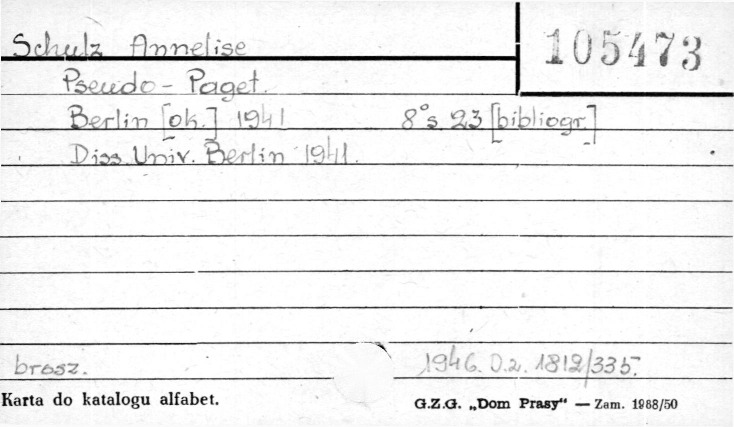 Schulz Annelise
105473
Pseudo-Paget.
Berlin [ok.] 1941 8° s. 23 [bibliogr.]
Diss. Univ. Berlin 1941.
brosz. 1946. D.2. 1812/335.
Karta do katalogu alfabet. G.Z.G. „Dom Prasy“ — Zam. 1988/50